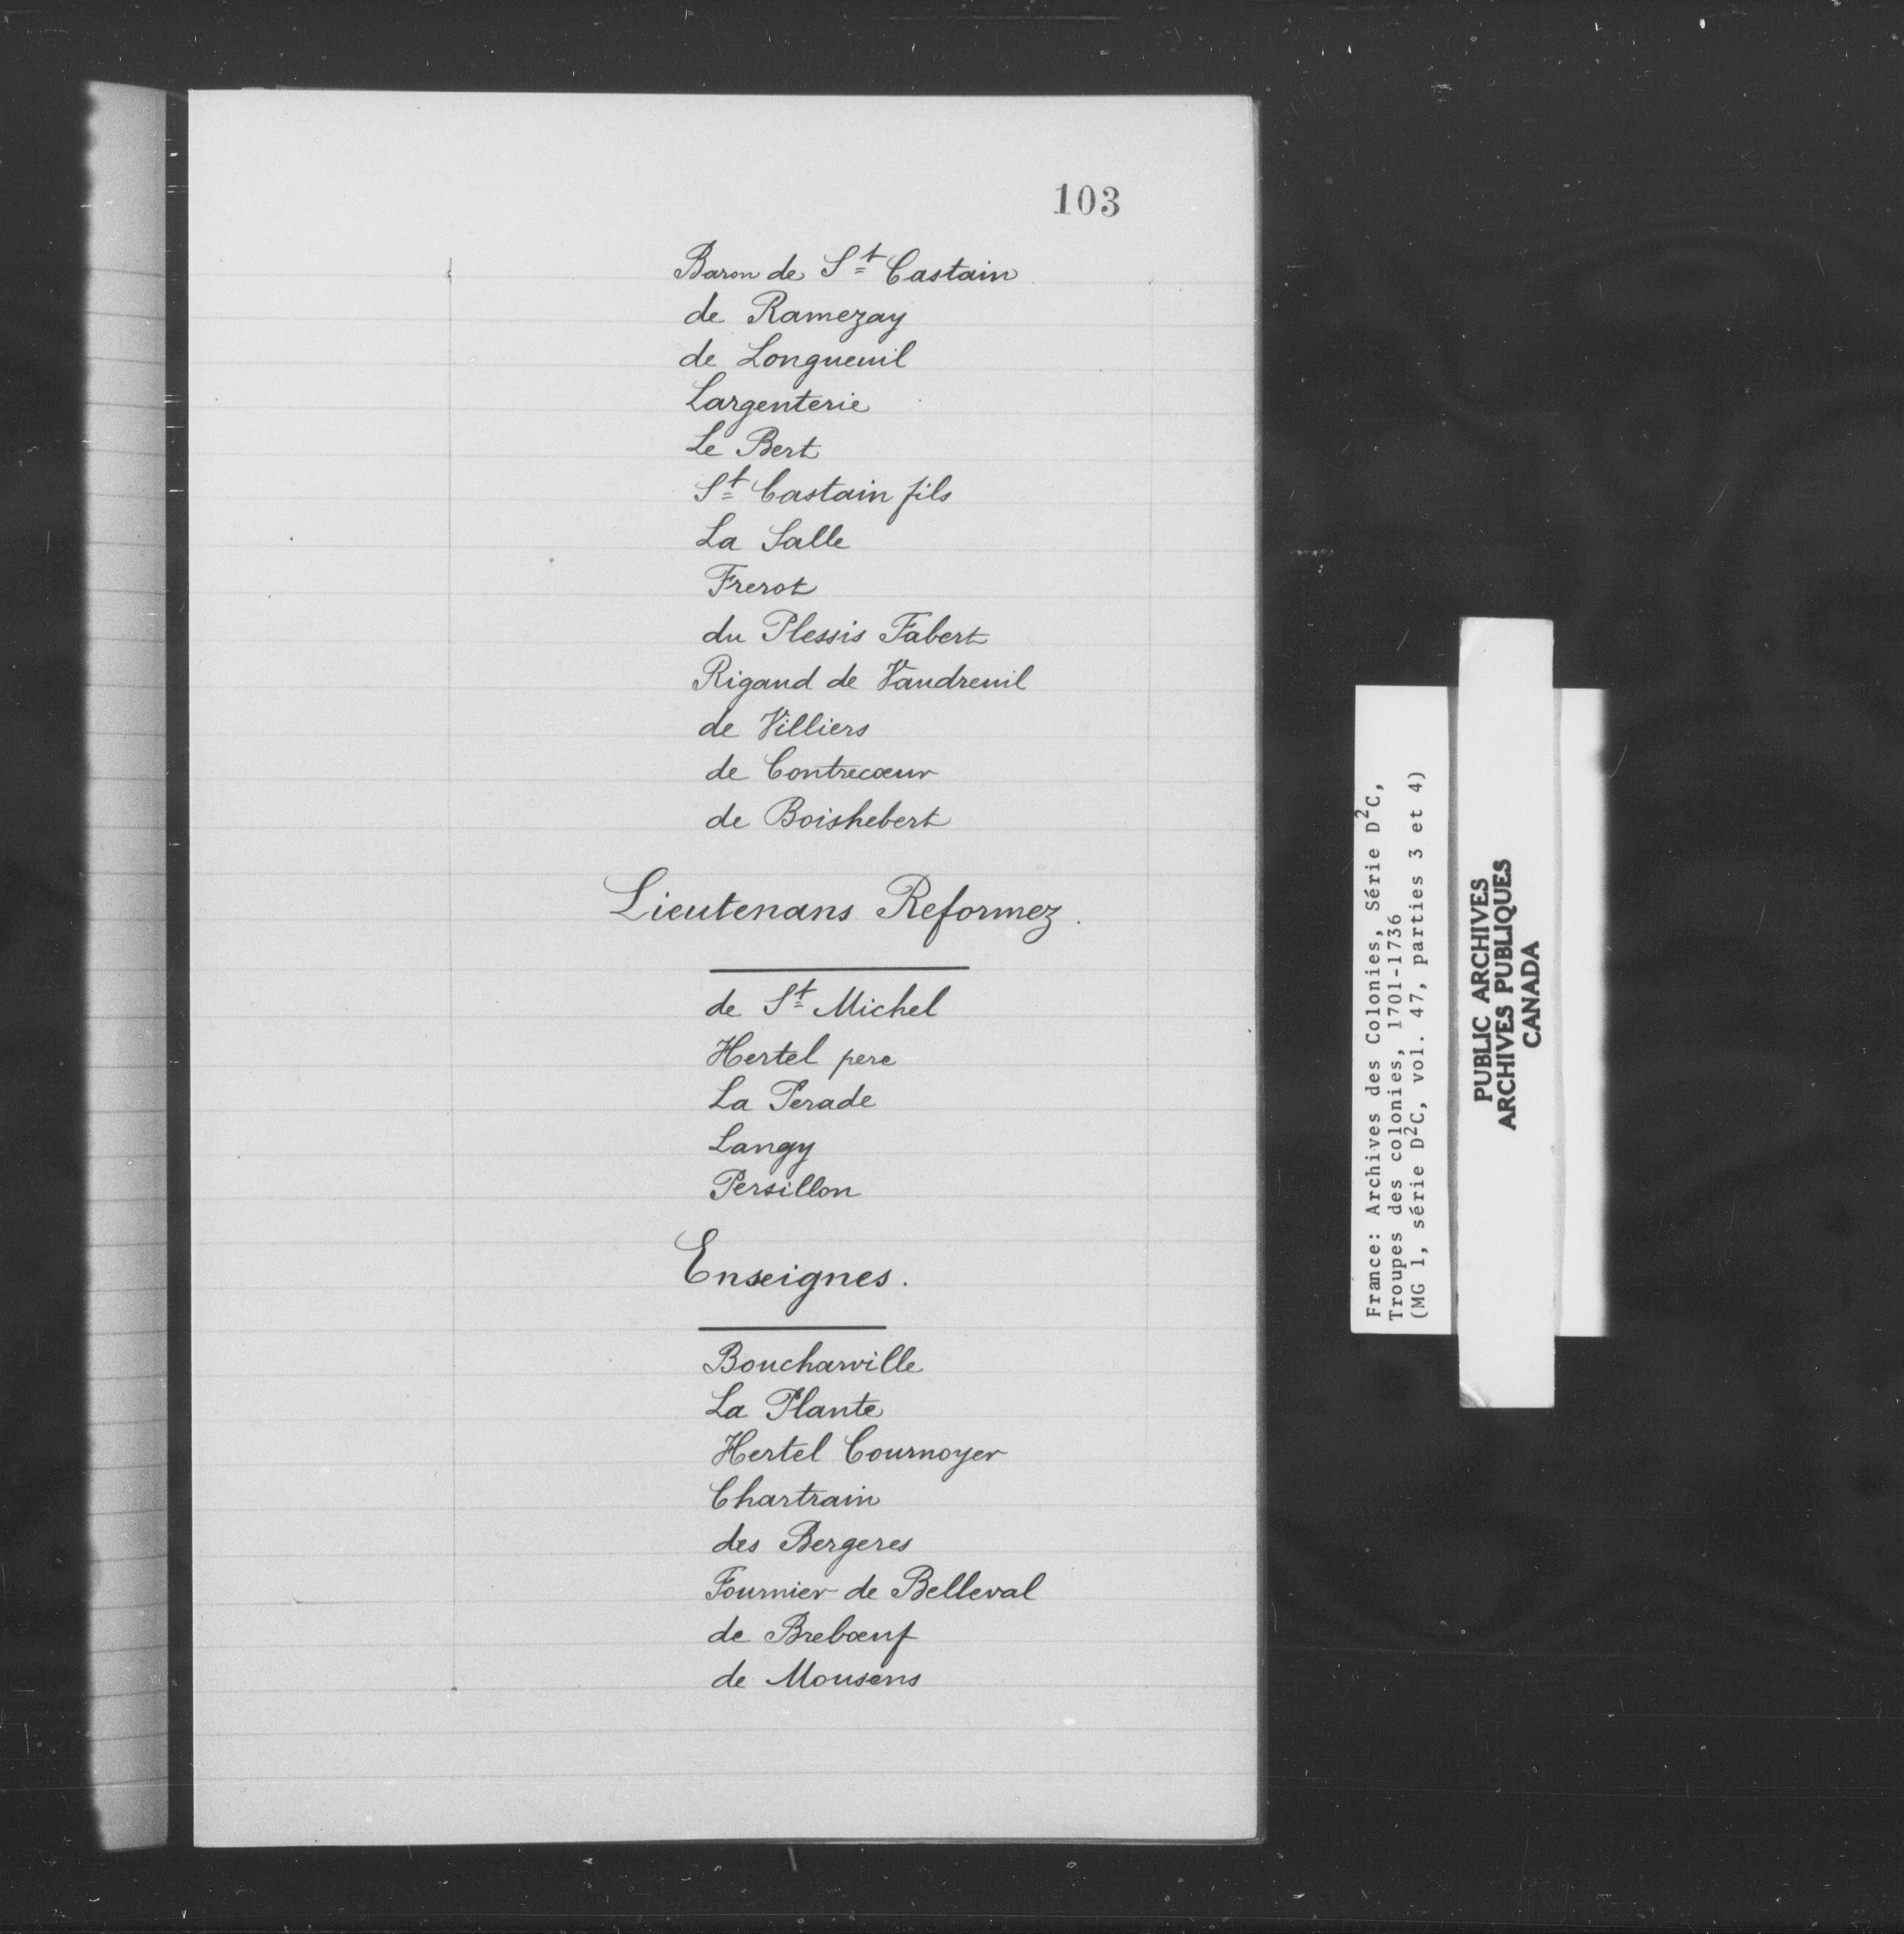 103
Baron de St Castain
de Ramezay
de Longueuil
Largenterie
Le Bert
St Castain fils
La Salle
Frerot
du Plessis Fabert
Rigaud de Vaudreuil
de Villiers
de Contrecœur
de Boishebert
Lieutenans Reformez.
de St Michel
Hertel pere
La Perade
Langy
Persillon
Enseignes.
Boucharville
La Plante
Hertel Cournoyer
Chartrain
des Bergeres
Fournier de Belleval
de Brebœuf
de Mousens
France: Archives des Colonies, Série D²C,
Troupes des colonies, 1701-1736
(MG 1, série D²C, vol. 47, parties 3 et 4)
PUBLIC ARCHIVES
ARCHIVES PUBLIQUES
CANADA